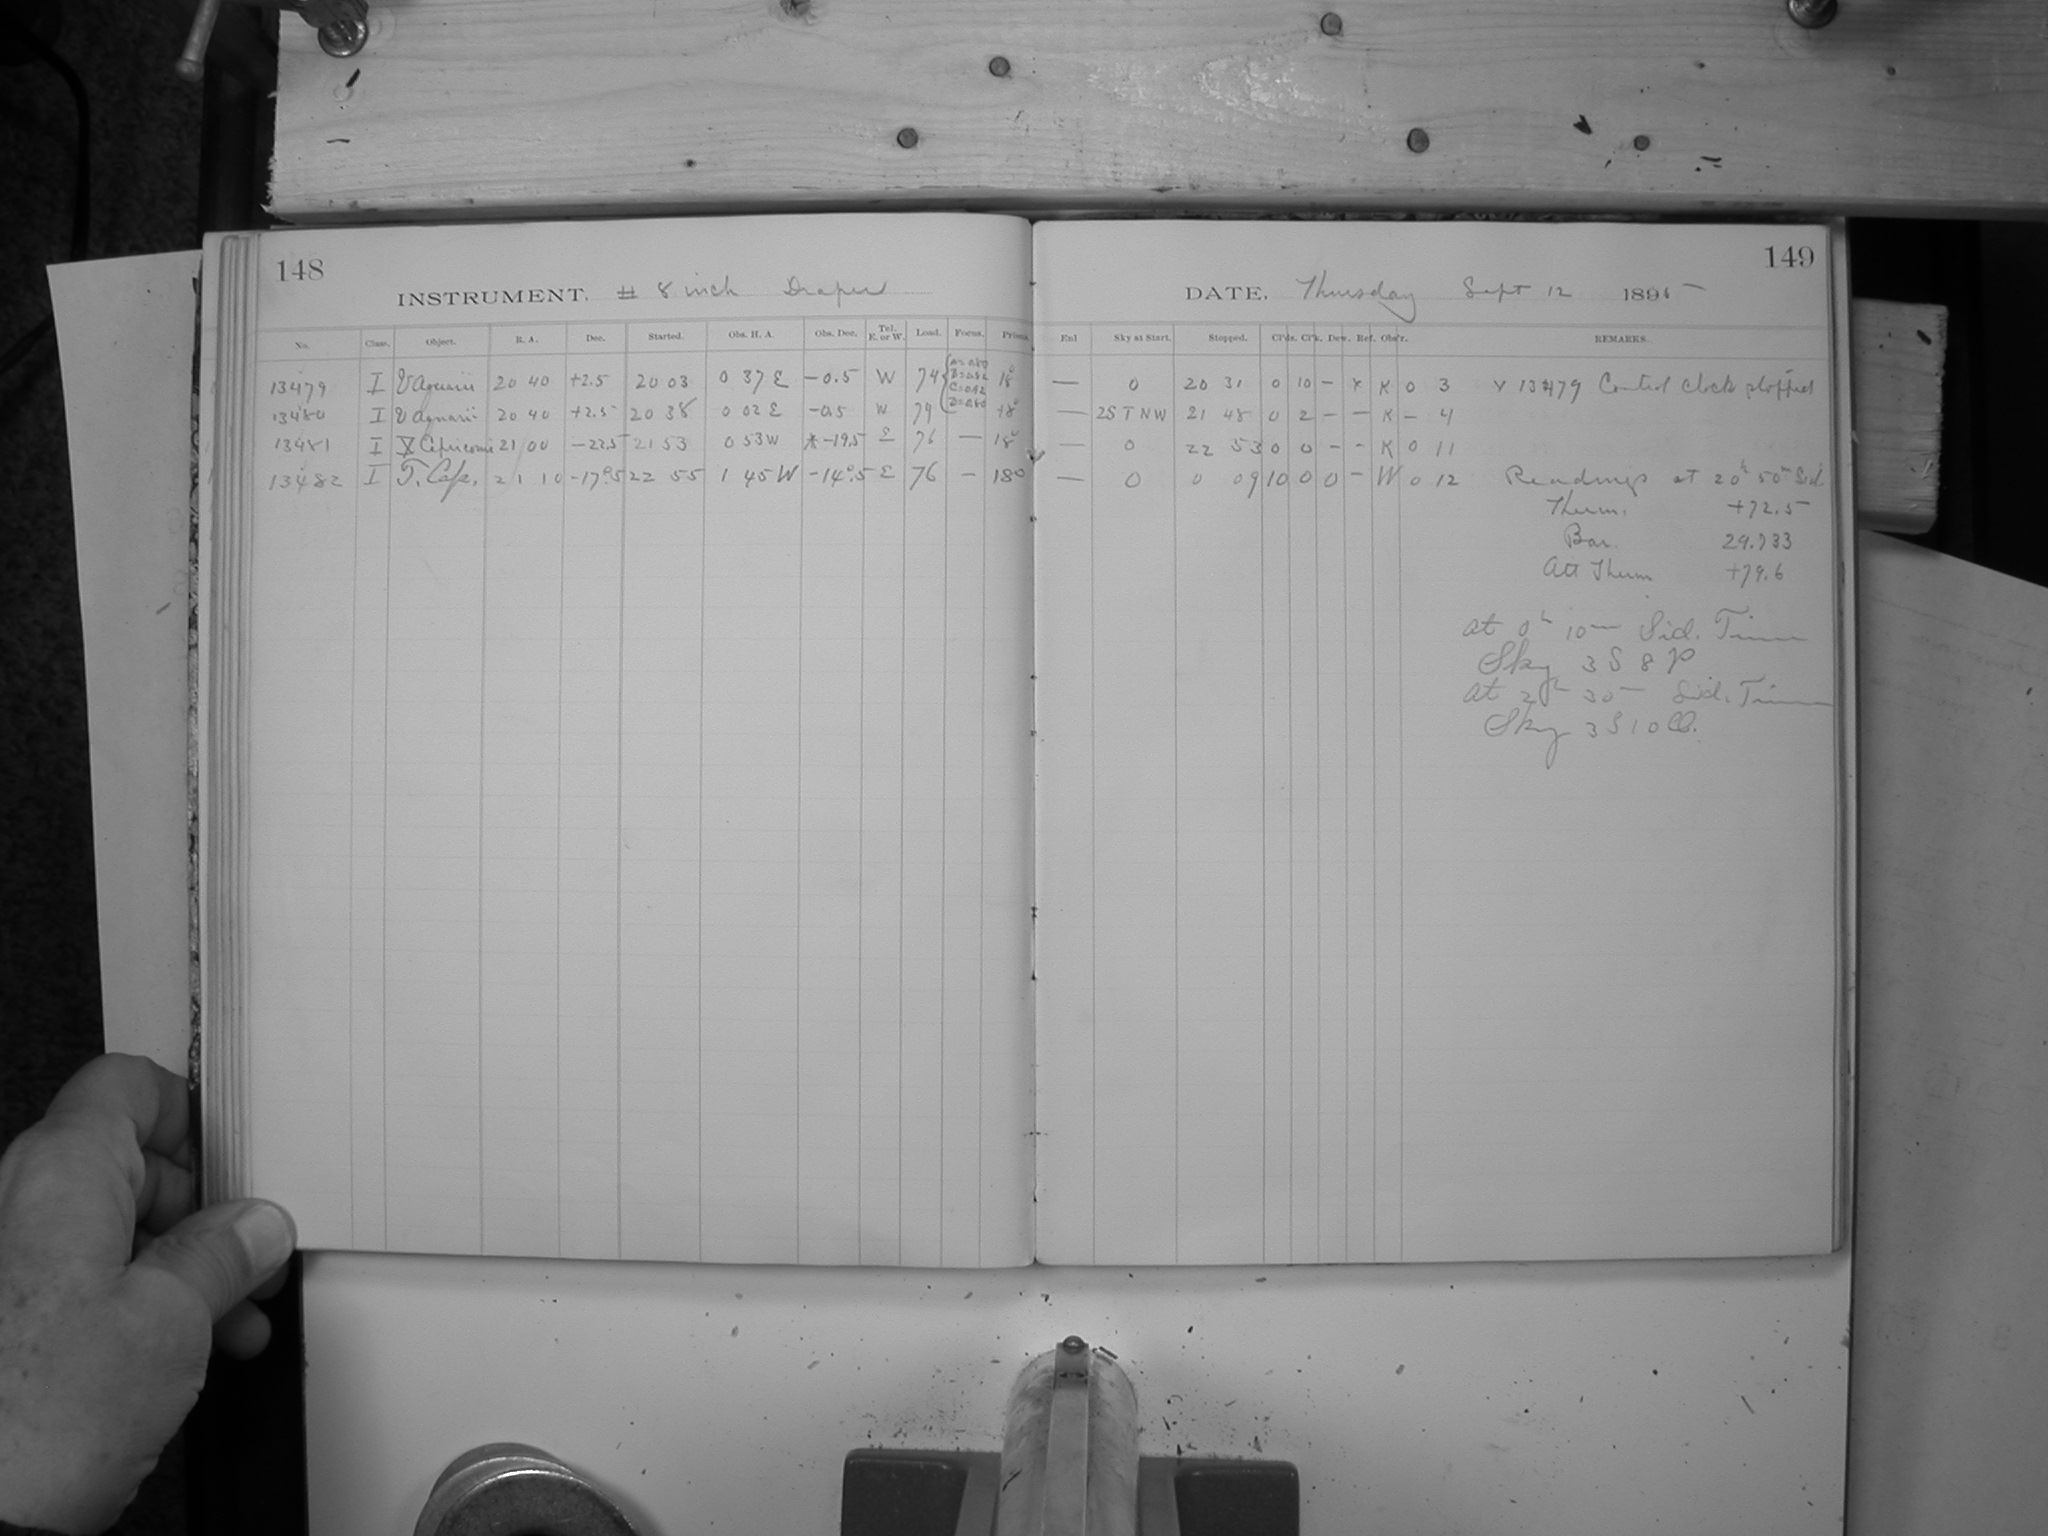 148
INSTRUMENT. # 8 inch Draper
No. Class. Object. R. A. Dec. Started. Obs. H. A. Obs. Dec. Tel. E. or W. Load. Focus. Prism.
13479 I V Aquarii 20 40 +2.5 20 03 0 37 E -0.5 W 74 18°
13480 I V Aquarii 20 40 +2.5 20 38 0 02 E -0.5 W 74 18°
13481 I X Capricorni 21 00 -22.5 21 53 0 53 W -19.5 E 76 — 18°
13482 I T. Cap. 21 10 -17°.5 22 55 1 45 W -14°.5 E 76 — 18°
149
DATE. Thursday Sept 12 1895
Enl Sky at Start. Stopped. Cl'ds. Cl'k. Dew. Ref. Obs'r. REMARKS.
— 0 20 31 0 10 - x K 0 3 x 13479 Control clock stopped
— 2S T NW 21 48 0 2 - - K - 4
— 0 22 53 0 0 - - K 0 11
— 0 0 09 10 0 0 - W 0 12 Readings at 20h 50m Sid
Therm. +72.5
Bar. 29.733
Att Therm +79.6
at 0h 10m Sid. Time
Sky 3 S 8 P
at 2h 30m Sid. Time
Sky 3 S 10